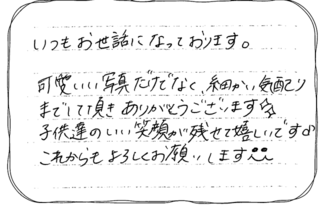 いつもお世話になっております。
可愛いい写真だけでなく、細かい気配り
までして頂きありがとうございます
子供達のいい笑顔が残せて嬉しいです♪
これからもよろしくお願いします